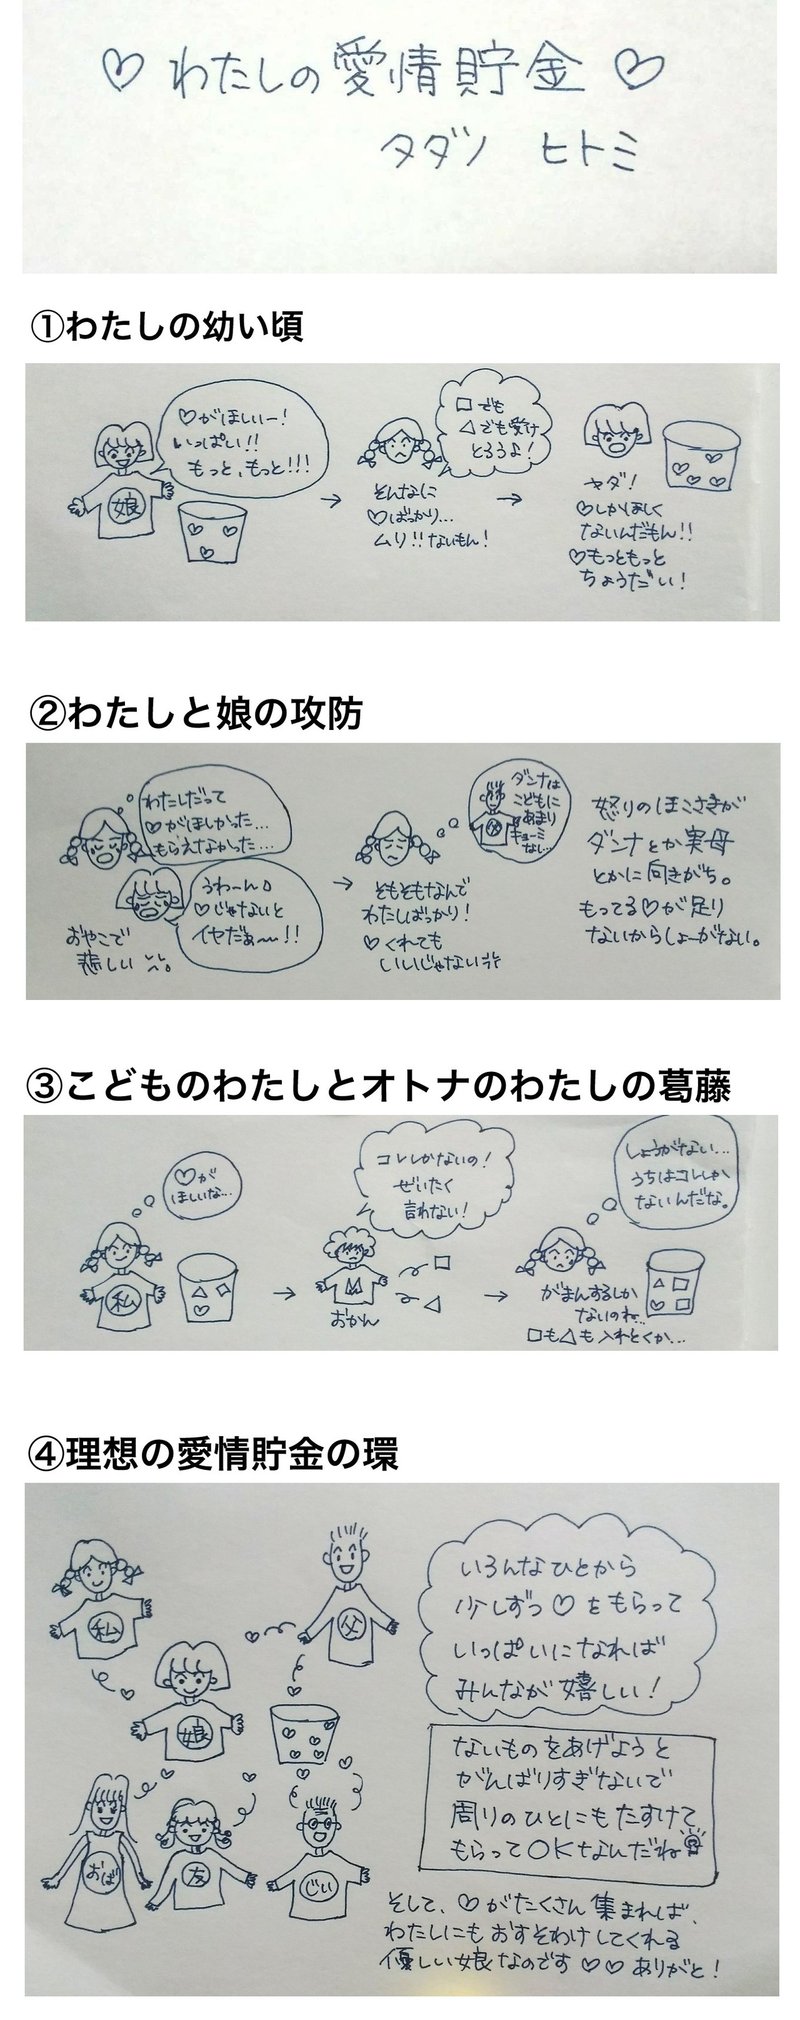 ♡わたしの愛情貯金♡
タダノ ヒトミ
①わたしの幼い頃
♡がほしいー!
いっぱい!!
もっと、もっと!!!
娘
□でも
△でも受け
とろうよ!
そんなに
♡ばっかり…
ムリ!!ないもん!
ヤダ!
♡しかほしく
ないんだもん!!
♡もっともっと
ちょうだい!
②わたしと娘の攻防
わたしだって
♡がほしかった…
もらえなかった…
うわーん
♡じゃないと
イヤだぁ〜!!
おやこで
悲しい
ダンナは
こどもに
あまり
キョーミ
ない…
父
そもそもなんで
わたしばっかり!
♡くれても
いいじゃない
怒りのほこさきが
ダンナとか実母
とかに向きがち。
もってる♡が足り
ないからしょーがない。
③こどものわたしとオトナのわたしの葛藤
♡が
ほしいな…
私
コレしかないの!
ぜいたく
言わない!
M
おかん
しょうがない…
うちはコレしか
ないんだな。
がまんするしか
ないのね…
□も△も入れとくか…
④理想の愛情貯金の環
私
父
娘
おば
友
じい
いろんなひとから
少しずつ♡をもらって
いっぱいになれば
みんなが嬉しい!
ないものをあげようと
がんばりすぎないで
周りのひとにもたすけて
もらってOKなんだね
そして、♡がたくさん集まれば、
わたしにもおすそわけしてくれる
優しい娘なのです♡♡ありがと!